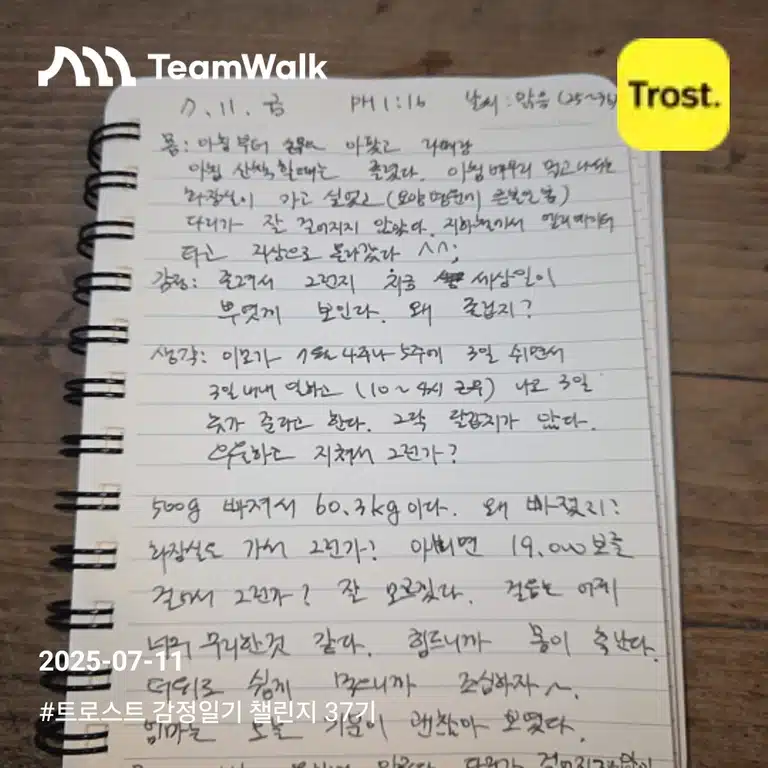 TeamWalk
Trost.
7. 11. 금 PM 1:16 날씨 : 맑음 (25~36
몸 : 아침부터 아팠고
아침 산책 할때는 졸렸다. 아침 먹고 나서는
화장실이 가고 싶었고
다리가 잘 걸어지지 않았다. 지하철가서 엘리베이터
타고 지상으로 올라갔다 ^^;
감정 : 졸려서 그런지 지금 세상일이
부옇게 보인다. 왜 졸립지?
생각 : 이모가 4주나 5주에 3일 쉬면서
3일 내내 일하고 (10~ 4시 근무) 나오 3일
휴가 준다고 한다. 그닥 달갑지가 않다.
우울하고 지쳐서 그런가?
500g 빠져서 60.3kg이다. 왜 빠졌지?
화장실도 가서 그런가? 아니면 19,000보를
걸어서 그런가? 잘 모르겠다. 걸음는 어제
너무 무리한것 같다. 힘드니까 몸이 축난다.
더위로 쉽게 먹으니까 조심하자~.
엄마는 오늘 기분이 괜찮아 보였다.
2025-07-11
#트로스트 감정일기 챌린지 37기